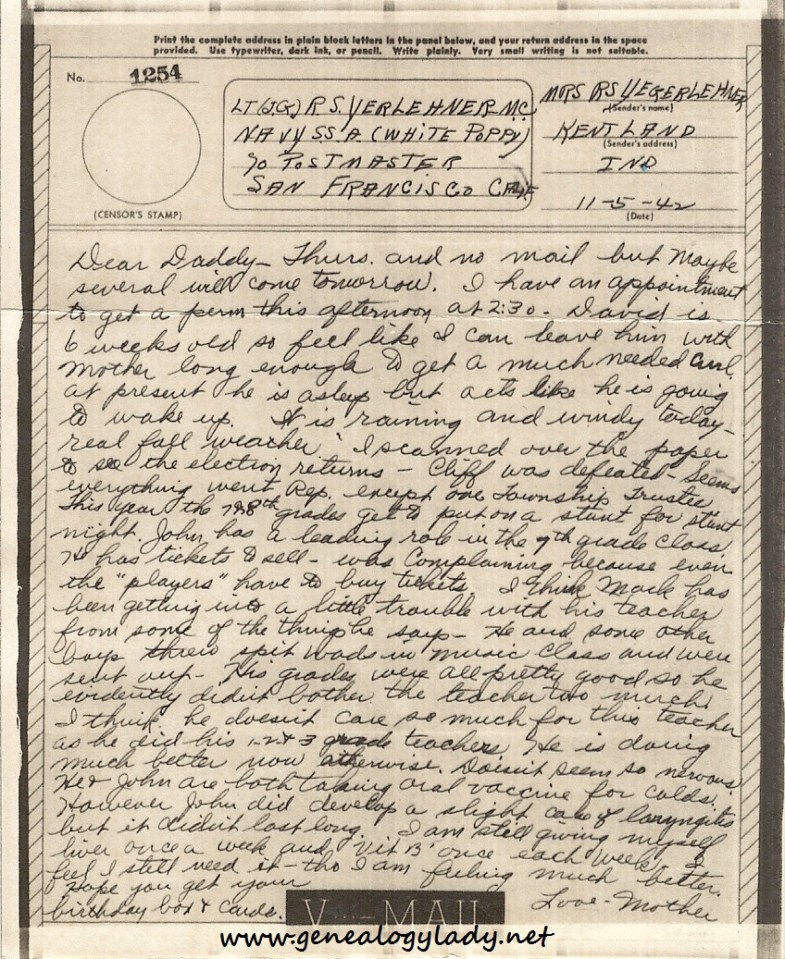 Print the complete address in plain block letters in the panel below, and your return address in the space
provided. Use typewriter, dark ink, or pencil. Write plainly. Very small writing is not suitable.
No. 1254
(CENSOR'S STAMP)
LT (J.G.) R S. YERLEHNER M.C.
NAVY S.S. A. (WHITE POPPY)
% POSTMASTER
SAN FRANCISCO CALIF
MRS RS YEGERLEHNER
(Sender's name)
KENTLAND
(Sender's address)
IND
11-5-42
(Date)
Dear Daddy - Thurs. and no mail but maybe
several will come tomorrow. I have an appointment
to get a perm this afternoon at 2:30 - David is
6 weeks old so feel like I can leave him with
Mother long enough to get a much needed curl.
at present he is asleep but acts like he is going
to wake up. It is raining and windy today -
real fall weather. I scanned over the paper
to see the election returns - Cliff was defeated - Seems
everything went Rep. except one Township Trustee
This year the 7 & 8th grades get to put on a stunt for stunt
night. John has a leading role in the 7th grade class,
He has tickets to sell - was complaining because even
the "players" have to buy tickets. I think Mack has
been getting into a little trouble with his teacher
from some of the things he says - He and some other
boys threw spit wads in music class and were
sent out - His grades were all pretty good so he
evidently didn't bother the teacher too much!
I think he doesn't care so much for this teacher
as he did his 1-2 & 3 grade teachers He is doing
much better now otherwise. Doesn't seem so nervous
He & John are both taking oral vaccine for colds.
However John did develop a slight case of laryngitis
but it didn't last long. I am still giving myself
liver once a week and Vit B once each week. I
feel I still need it - tho I am feeling much better.
Hope you get your
birthday box & cards.
Love - Mother
V···-MAIL
www.genealogylady.net